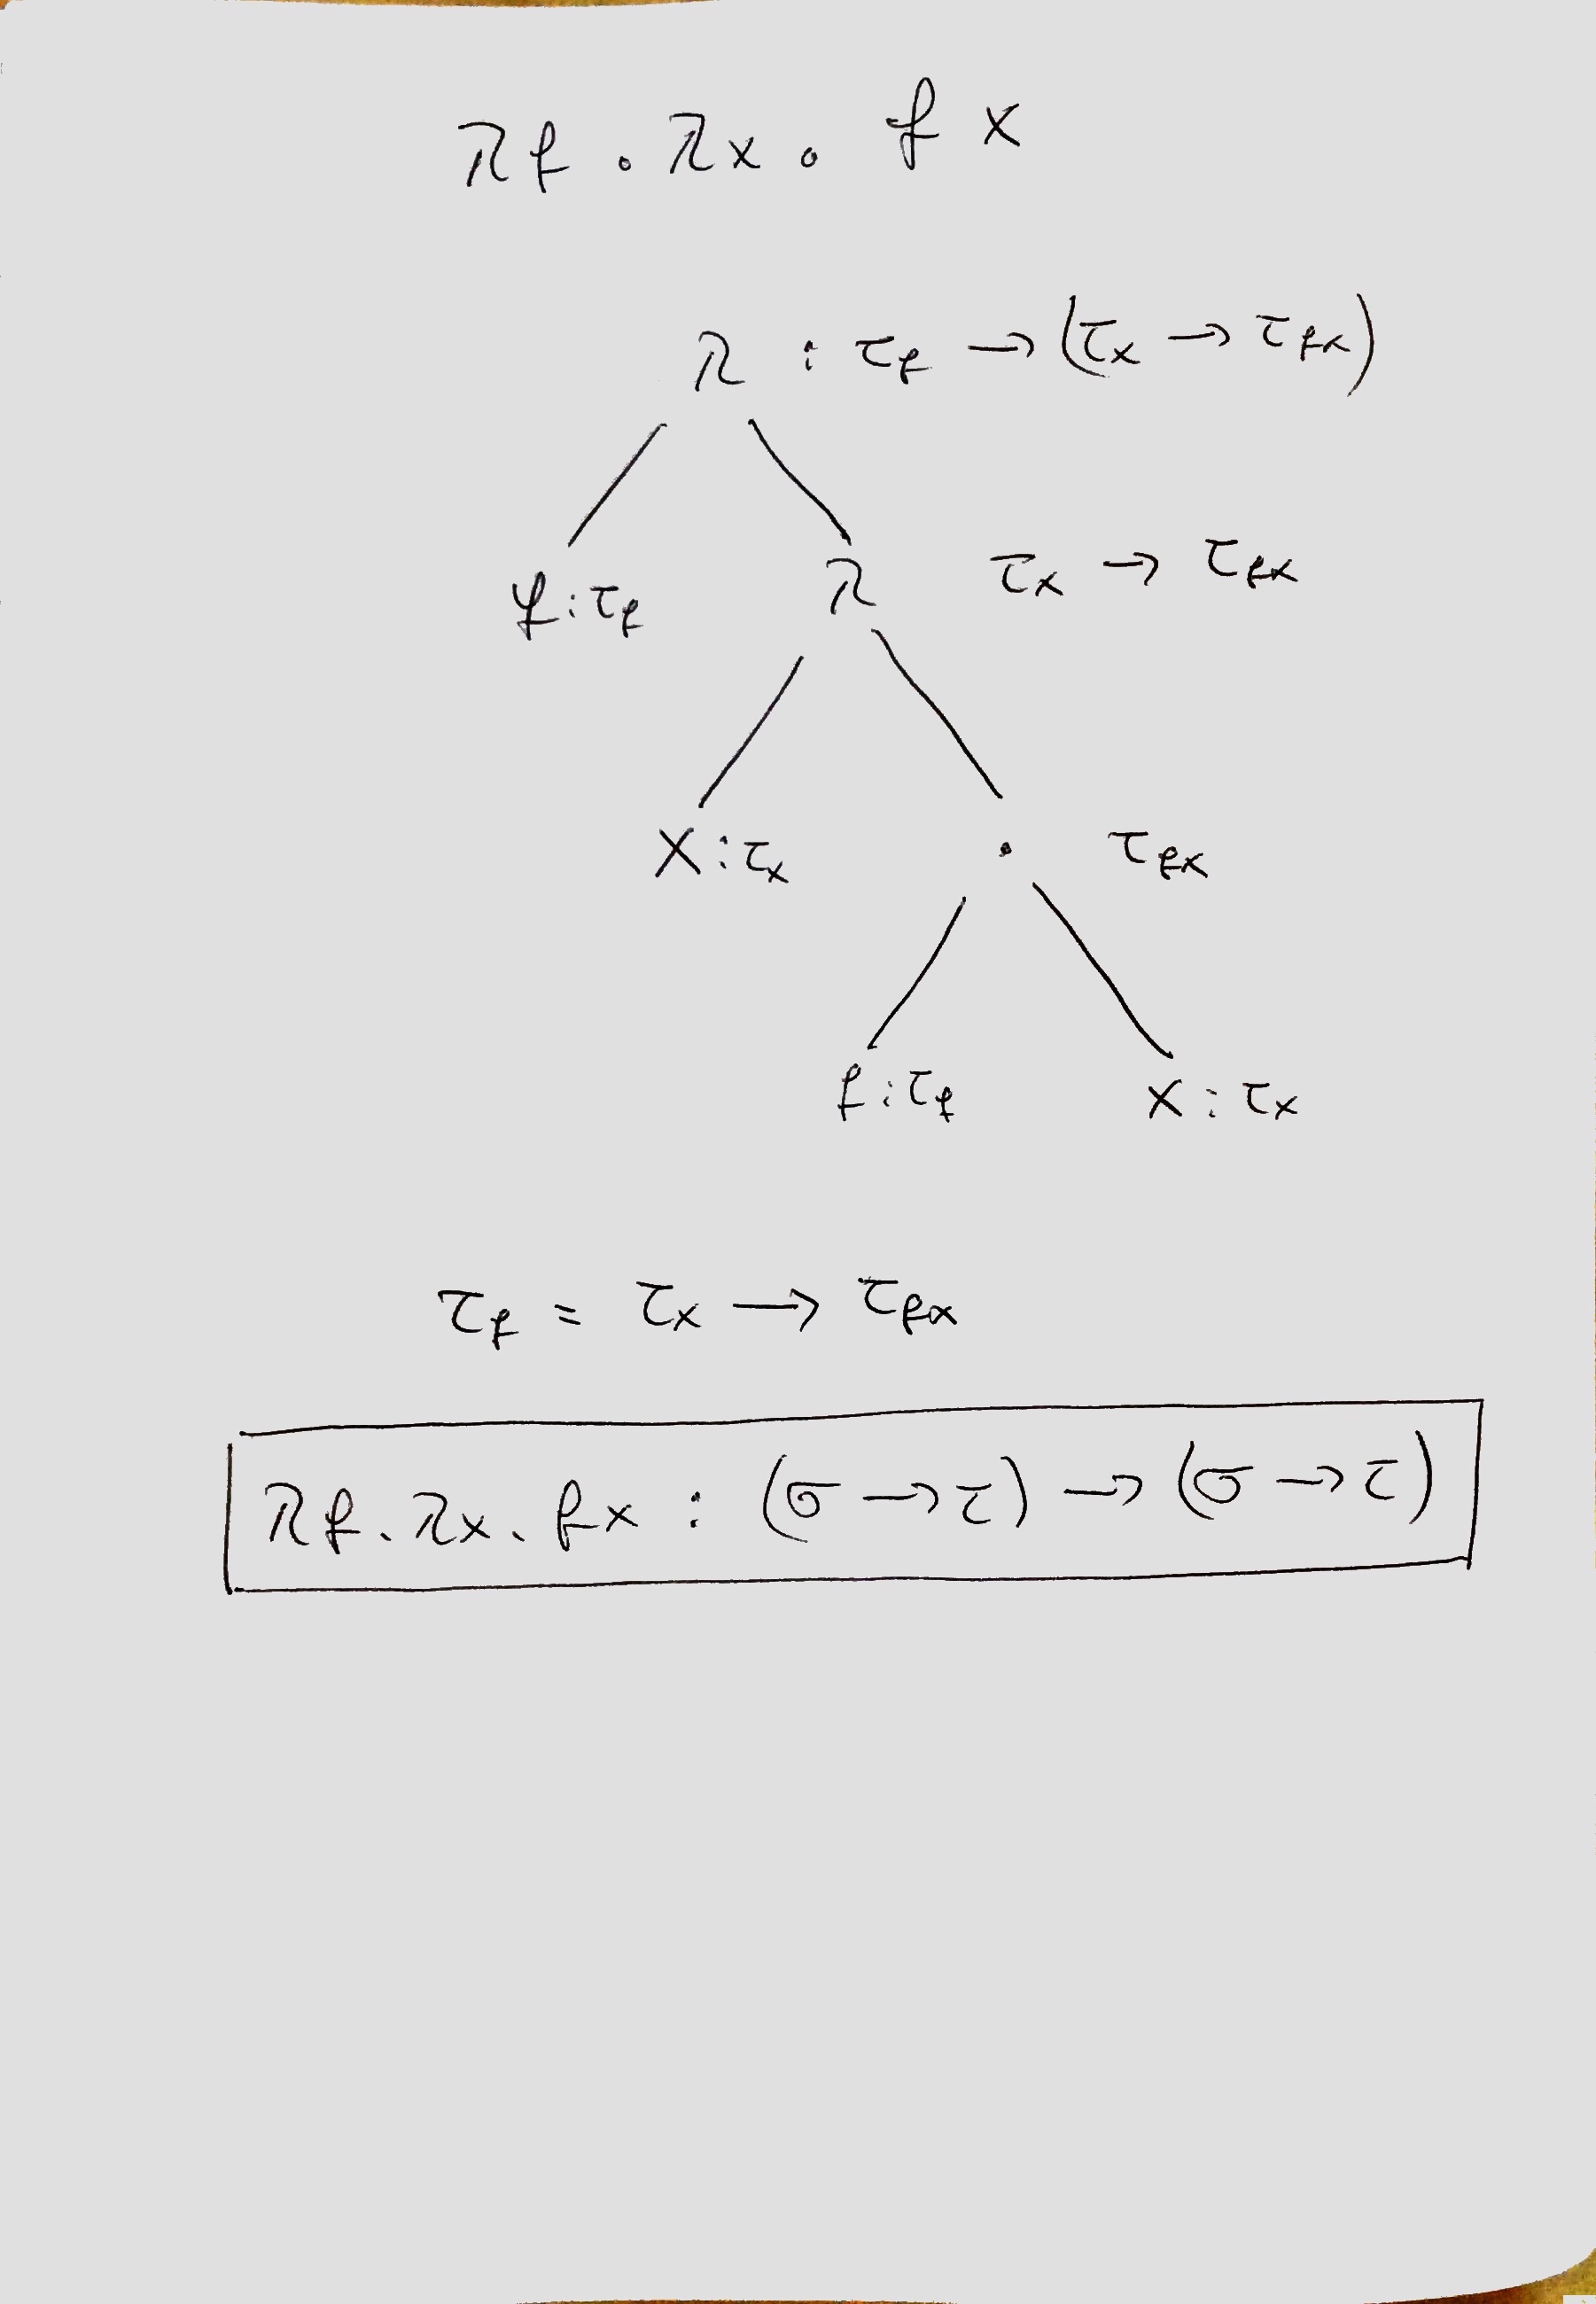 λf . λx . f x
λ : τ_f → (τ_x → τ_fx)
f : τ_f λ τ_x → τ_fx
x : τ_x . τ_fx
f : τ_f x : τ_x
τ_f = τ_x → τ_fx
λf. λx. fx : (σ → τ) → (σ → τ)